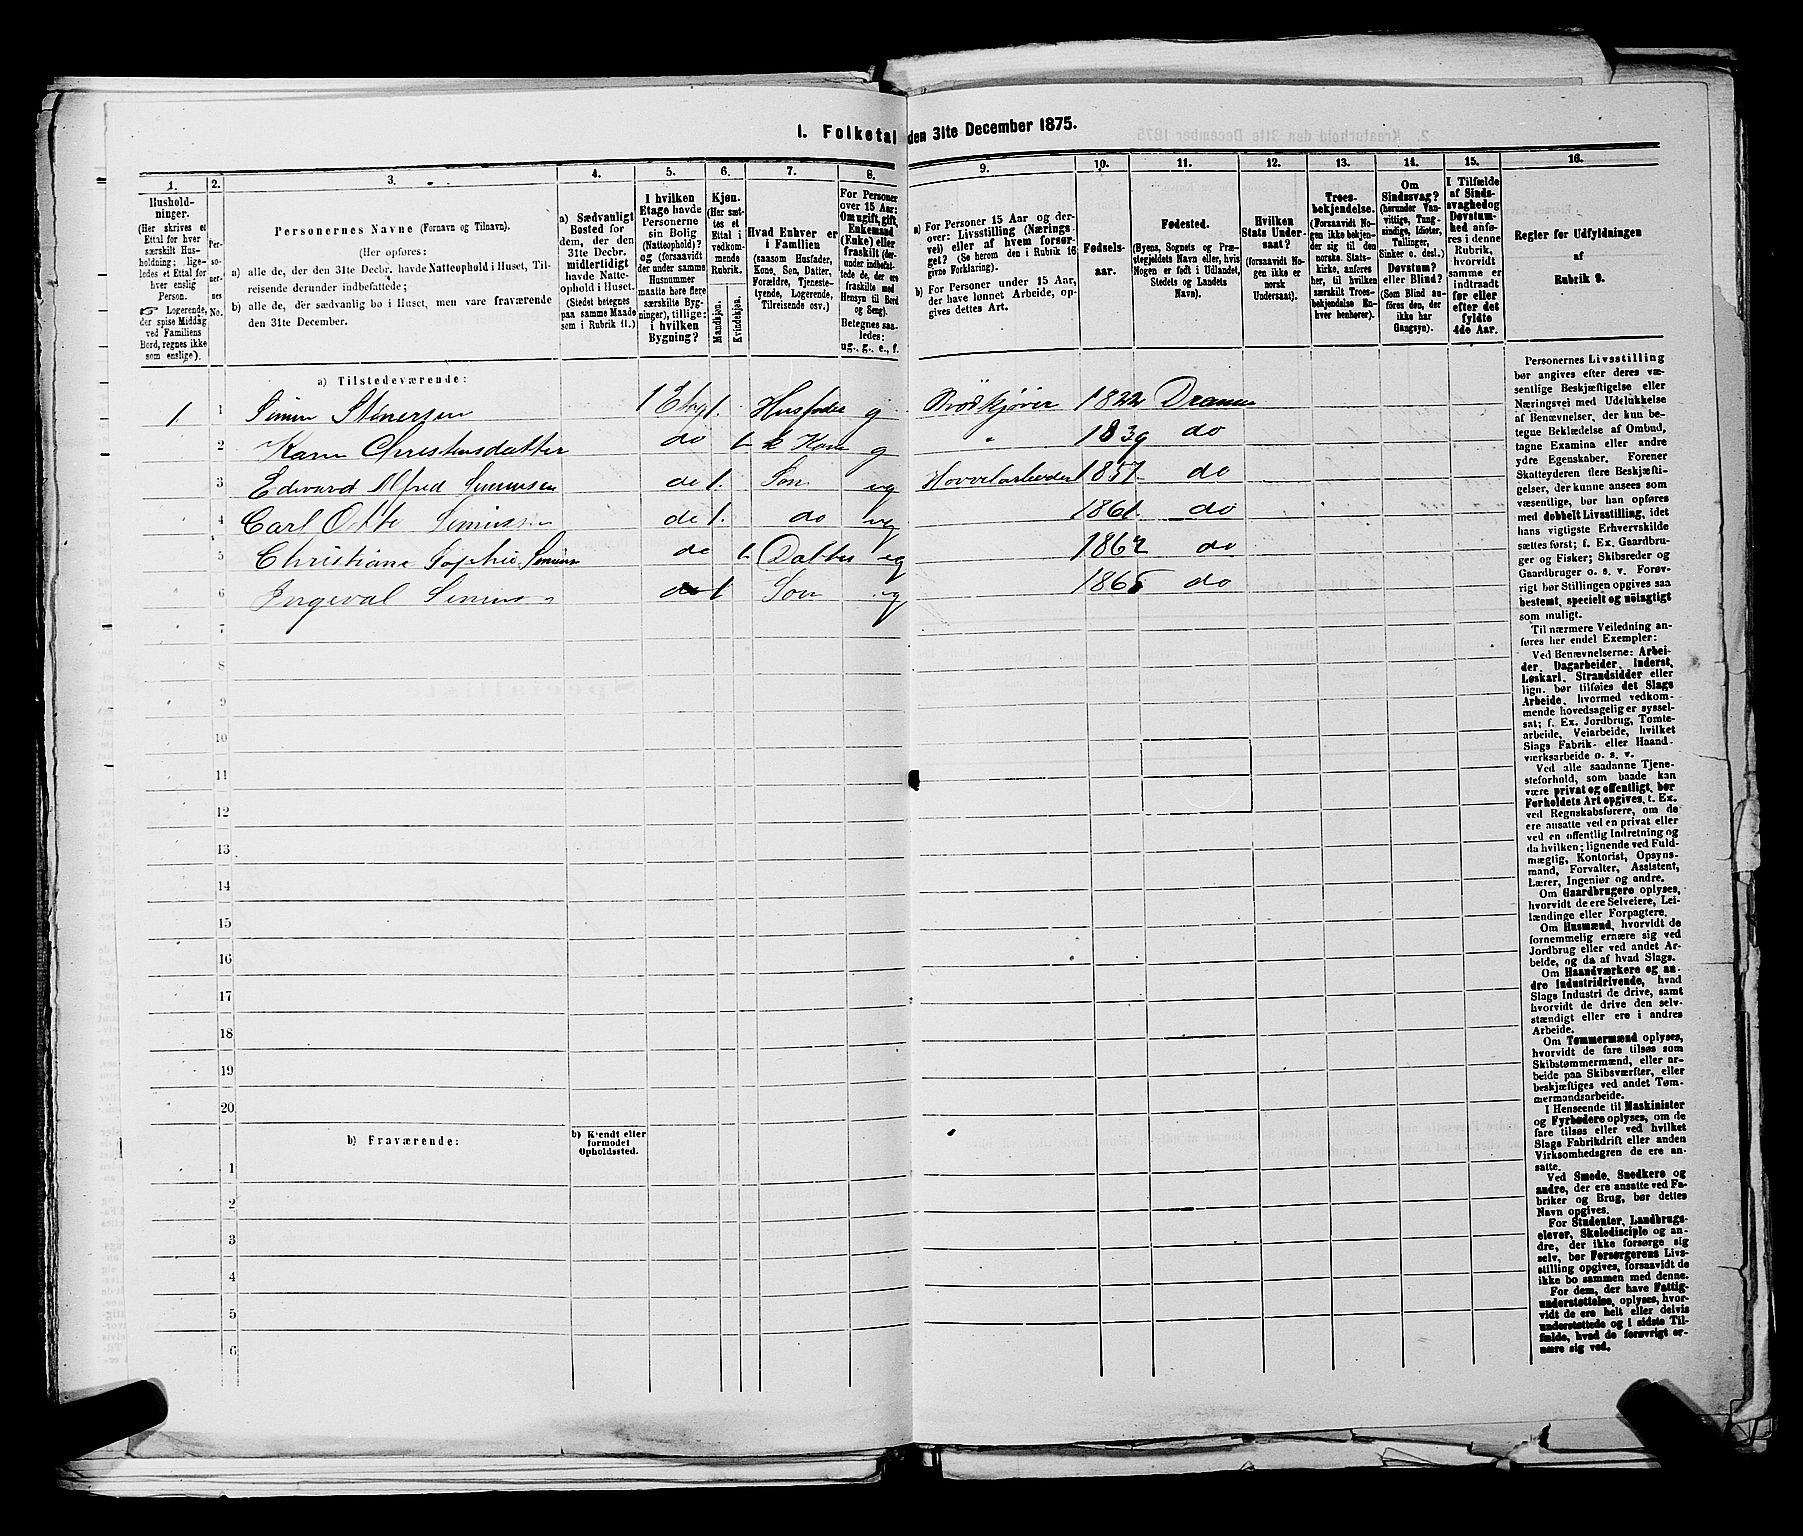 1. Folketal den 31te December 1875.
1. 2. 3. 4. 5. 6. 7. 8. 9. 10. 11. 12. 13. 14. 15. 16.
Hushold-
ninger.
(Her skrives et
Ettal for hver
særskilt Hus-
holdning; lige-
ledes et Ettal for
hver enslig
Person.
☞ Logerende,
der spise Middag
ved Familiens
Bord, regnes ikke
som enslige).
Per-
so-
ner-
nes
No.
Personernes Navne (Fornavn og Tilnavn).
(Her opføres:
a) alle de, der den 31te Decbr. havde Natteophold i Huset, Til-
reisende derunder indbefattede;
b) alle de, der sædvanlig bo i Huset, men vare fraværende
den 31te December.
a) Sædvanligt
Bosted for
dem, der den
31te Decbr.
midlertidigt
havde Natte-
ophold i Huset.
(Stedet betegnes
paa samme Maade
som i Rubrik 11.)
I hvilken
Etage havde
Personerne
sin Bolig
(Natteophold)?
og (forsaavidt
der under samme
Husnummer
maatte høre flere
særskilte Byg-
ninger), tillige:
i hvilken
Bygning?
Kjøn.
(Her sæt-
tes et
Ettal i
vedkom-
mende
Rubrik.
Mandkjøn.
Kvindekjøn.
Hvad Enhver er
i Familien
(saasom Husfader,
Kone, Søn, Datter,
Forældre, Tjeneste-
tyende, Logerende,
Tilreisende osv.)
For Personer
over 15 Aar:
Om ugift, gift,
Enkemand
(Enke) eller
fraskilt (der-
under indbefat-
tede de, der ere
fraskilte med
Hensyn til Bord
og Seng).
Betegnes saa-
ledes:
ug., g., e., f.
a) For Personer 15 Aar og der-
over: Livsstilling (Nærings-
vei) eller af hvem forsør-
get? (Se herom den i Rubrik 16
givne Forklaring).
b) For Personer under 15 Aar,
der have lønnet Arbeide, op-
gives dettes Art.
Fødsels-
aar.
Fødested.
(Byens, Sognets og Præ-
stegjeldets Navn eller, hvis
Nogen er født i Udlandet,
Stedets og Landets
Navn).
Hvilken
Stats Under-
saat?
(forsaavidt No-
gen ikke er
norsk
Undersaat).
Troes-
bekjendelse.
(Forsaavidt No-
gen ikke bekjen-
der sig til den
norske Stats-
kirke, anføres
her, til hvilken
særskilt Troes-
bekjendelse En-
hver henhører).
Om
Sindssvag?
(herunder Van-
vittige, Tung-
sindige, Idioter,
Tullinger,
Sinker o. desl.)
Døvstum?
eller Blind?
(Som Blind an-
føres den, der
ikke har
Gangsyn).
I Tilfælde
af Sinds-
svaghed og
Døvstum-
hed anfø-
res i denne
Rubrik,
hvorvidt
samme er
indtraadt
før eller
efter det
fyldte
4de Aar.
Regler for Udfyldningen
af
Rubrik 9.
a) Tilstedeværende:
1. 1 Simen Simersen 1 Etag 1. Husfader g Brödkjörer 1822 Dramm
2 Karen Christensdatter do 1. Kone g " 1839 do
3 Edvard Alfred Simensen do 1. Sön ug Hovelarbeider 1857 do
4 Carl Otto Simensen do 1. do ug 1861 do
5 Christiane Sophie Simens do 1. Datter ug 1862 do
6 Ingeval Simens do 1 Sön ug 1865 do
7
8
9
10
11
12
13
14
15
16
17
18
19
20
b) Fraværende:
b) Kjendt eller
formodet
Opholdssted.
1
2
3
4
5
6
Personernes Livsstilling
bør angives efter deres væ-
sentlige Beskjæftigelse eller
Næringsvei med Udelukkelse
af Benævnelser, der kun be-
tegne Beklædelse af Ombud,
tagne Examina eller andre
ydre Egenskaber. Forener
Skatteyderen flere Beskjæfti-
gelser, der kunne ansees som
væsentlige, bør han opføres
med dobbelt Livsstilling, idet
hans vigtigste Erhvervskilde
sættes først; f. Ex. Gaardbru-
ger og Fisker; Skibsreder og
Gaardbruger o. s. v. Forøv-
rigt bør Stillingen opgives saa
bestemt, specielt og nöiagtigt
som muligt.
Til nærmere Veiledning an-
føres her endel Exempler:
Ved Benævnelserne: Arbei-
der, Dagarbeider, Inderst,
Løskarl, Strandsidder eller
lign. bør tilføies det Slags
Arbeide, hvormed vedkom-
mende hovedsagelig er syssel-
sat; f. Ex. Jordbrug, Tomte-
arbeide, Veiarbeide, hvilket
Slags Fabrik- eller Haand-
værksarbeide o. s. v.
Ved alle saadanne Tjene-
steforhold, som baade kan
være privat og offentligt, bør
Forholdets Art opgives, t. Ex.
ved Regnskabsførere, om de
ere ansatte ved en privat eller
ved en offentlig Indretning og
da hvilken; lignende ved Fuld-
mægtig, Kontorist, Opsyns-
mand, Forvalter, Assistent,
Lærer, Ingeniør og andre.
Om Gaardbrugere oplyses,
hvorvidt de ere Selveiere, Lei-
lændinge eller Forpagtere.
Om Husmænd, hvorvidt de
fornemmelig ernære sig ved
Jordbrug eller ved andet Ar-
beide, og da af hvad Slags.
Om Haandværkere og an-
dre Industridrivende, hvad
Slags Industri de drive, samt
hvorvidt de drive den selv-
stændigt eller ere i andres
Arbeide.
Om Tømmermænd oplyses,
hvorvidt de fare tilsøs som
Skibstømmermænd, eller ar-
beide paa Skibsværfter, eller
beskjæftiges ved andet Tøm-
mermandsarbeide.
I Henseende til Maskinister
og Fyrbødere oplyses, om de
fare tilsøs eller ved hvilket
Slags Fabrikdrift eller anden
Virksomhedsgren de ere an-
satte.
Ved Smede, Snedkere og
andre, der ere ansatte ved Fa-
briker og Brug, bør dettes
Navn opgives.
For Studenter, Landbrugs-
elever, Skoledisciple og an-
dre, der ikke forsørge sig
selv, bør Forsørgerens Livs-
stilling opgives, forsaavidt de
ikke bo sammen med denne.
For dem, der have Fattig-
understøttelse, oplyses, hvor-
vidt de ere helt eller delvis
understøttede og i sidste Til-
fælde, hvad de forøvrigt er-
nære sig ved.